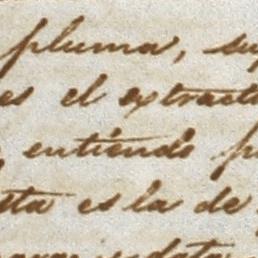 pluma, su
es el extracto
entiendo p
sta es la de